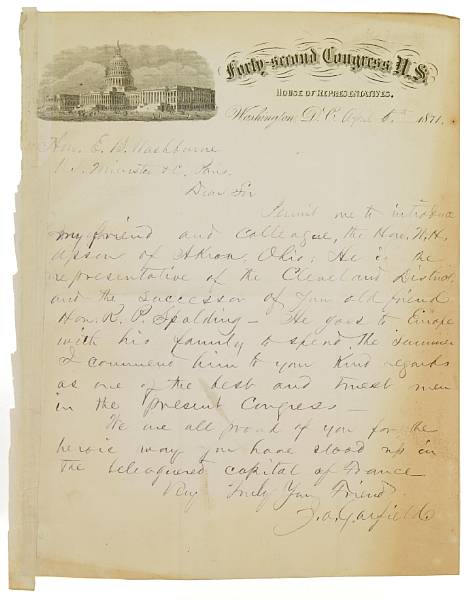 Forty-second Congress U.S.
HOUSE OF REPRESENTATIVES.
Washington, D.C. April 6th 1871.
Hon. E. B. Washburne
U.S. Minister &c. Paris
Dear Sir
Permit me to introduce
my friend and colleague, the Hon. W. H.
Upson of Akron, Ohio; He is the
representative of the Cleveland District,
and the successor of your old friend
Hon. R. P. Spalding – He goes to Europe
with his family to spend the summer
I commend him to your kind regards
as one of the best and truest men
in the present Congress –
We are all proud of you for the
heroic way you have stood up in
the beleaguered capital of France
Very Truly Your Friend
J. A. Garfield